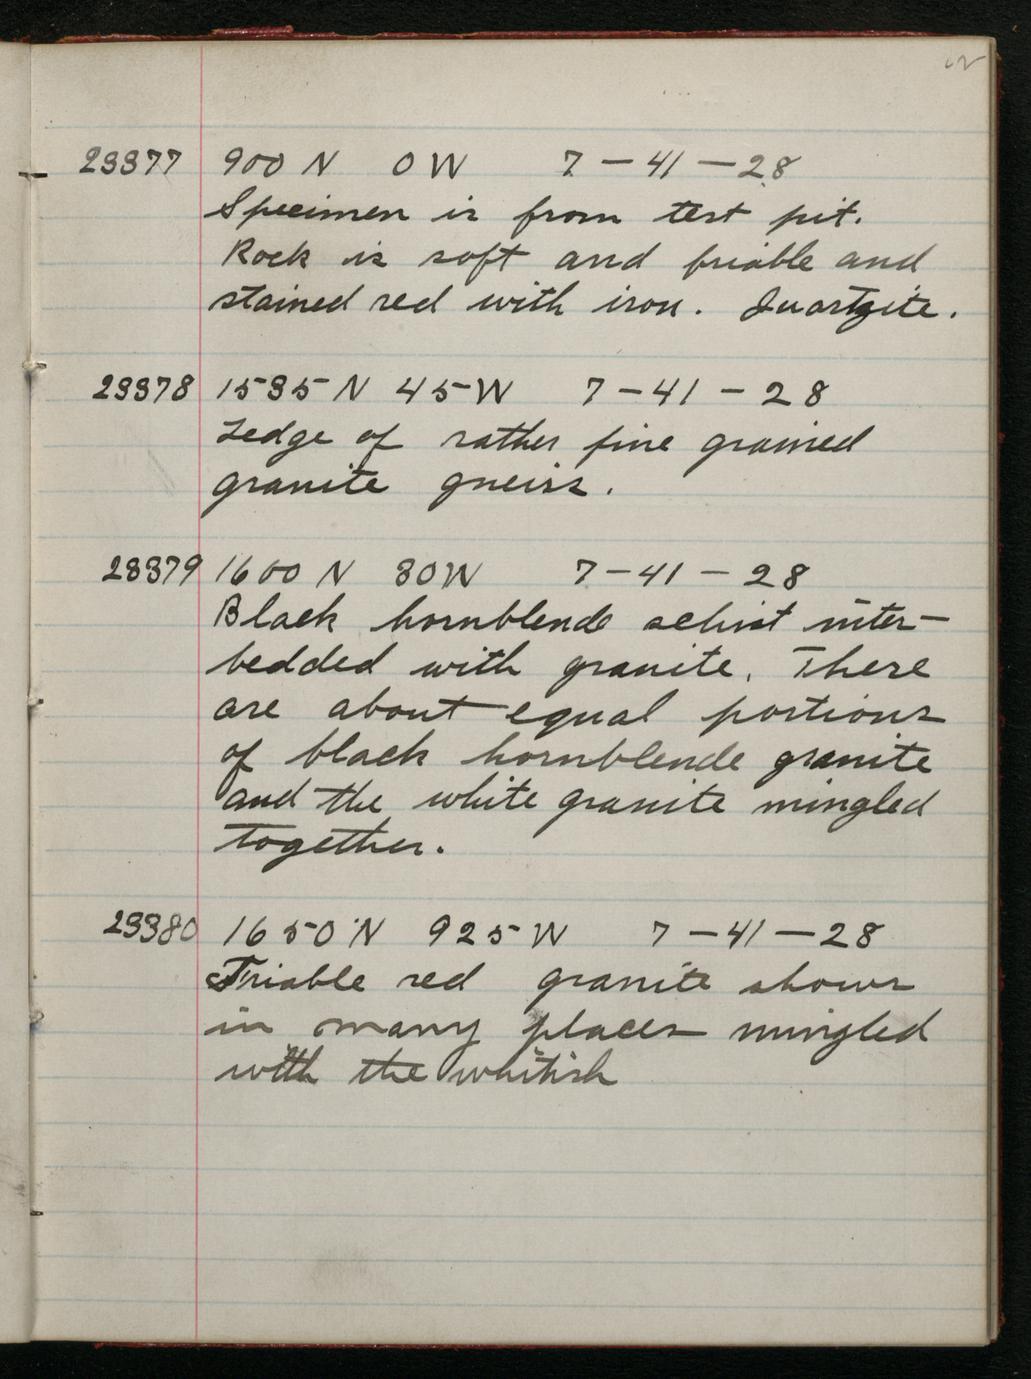 23377 900 N 0 W 7-41-28
Specimen is from test pit.
Rock is soft and friable and
stained red with iron. Quartzite.
23378 1535 N 45 W 7-41-28
Ledge of rather fine grained
granite gneiss.
23379 1600 N 30 W 7-41-28
Black hornblende schist inter-
bedded with granite. There
are about equal portions
of black hornblende granite
and the white granite mingled
together.
23380 1650 N 925 W 7-41-28
Friable red granite shows
in many places mingled
with the whitish